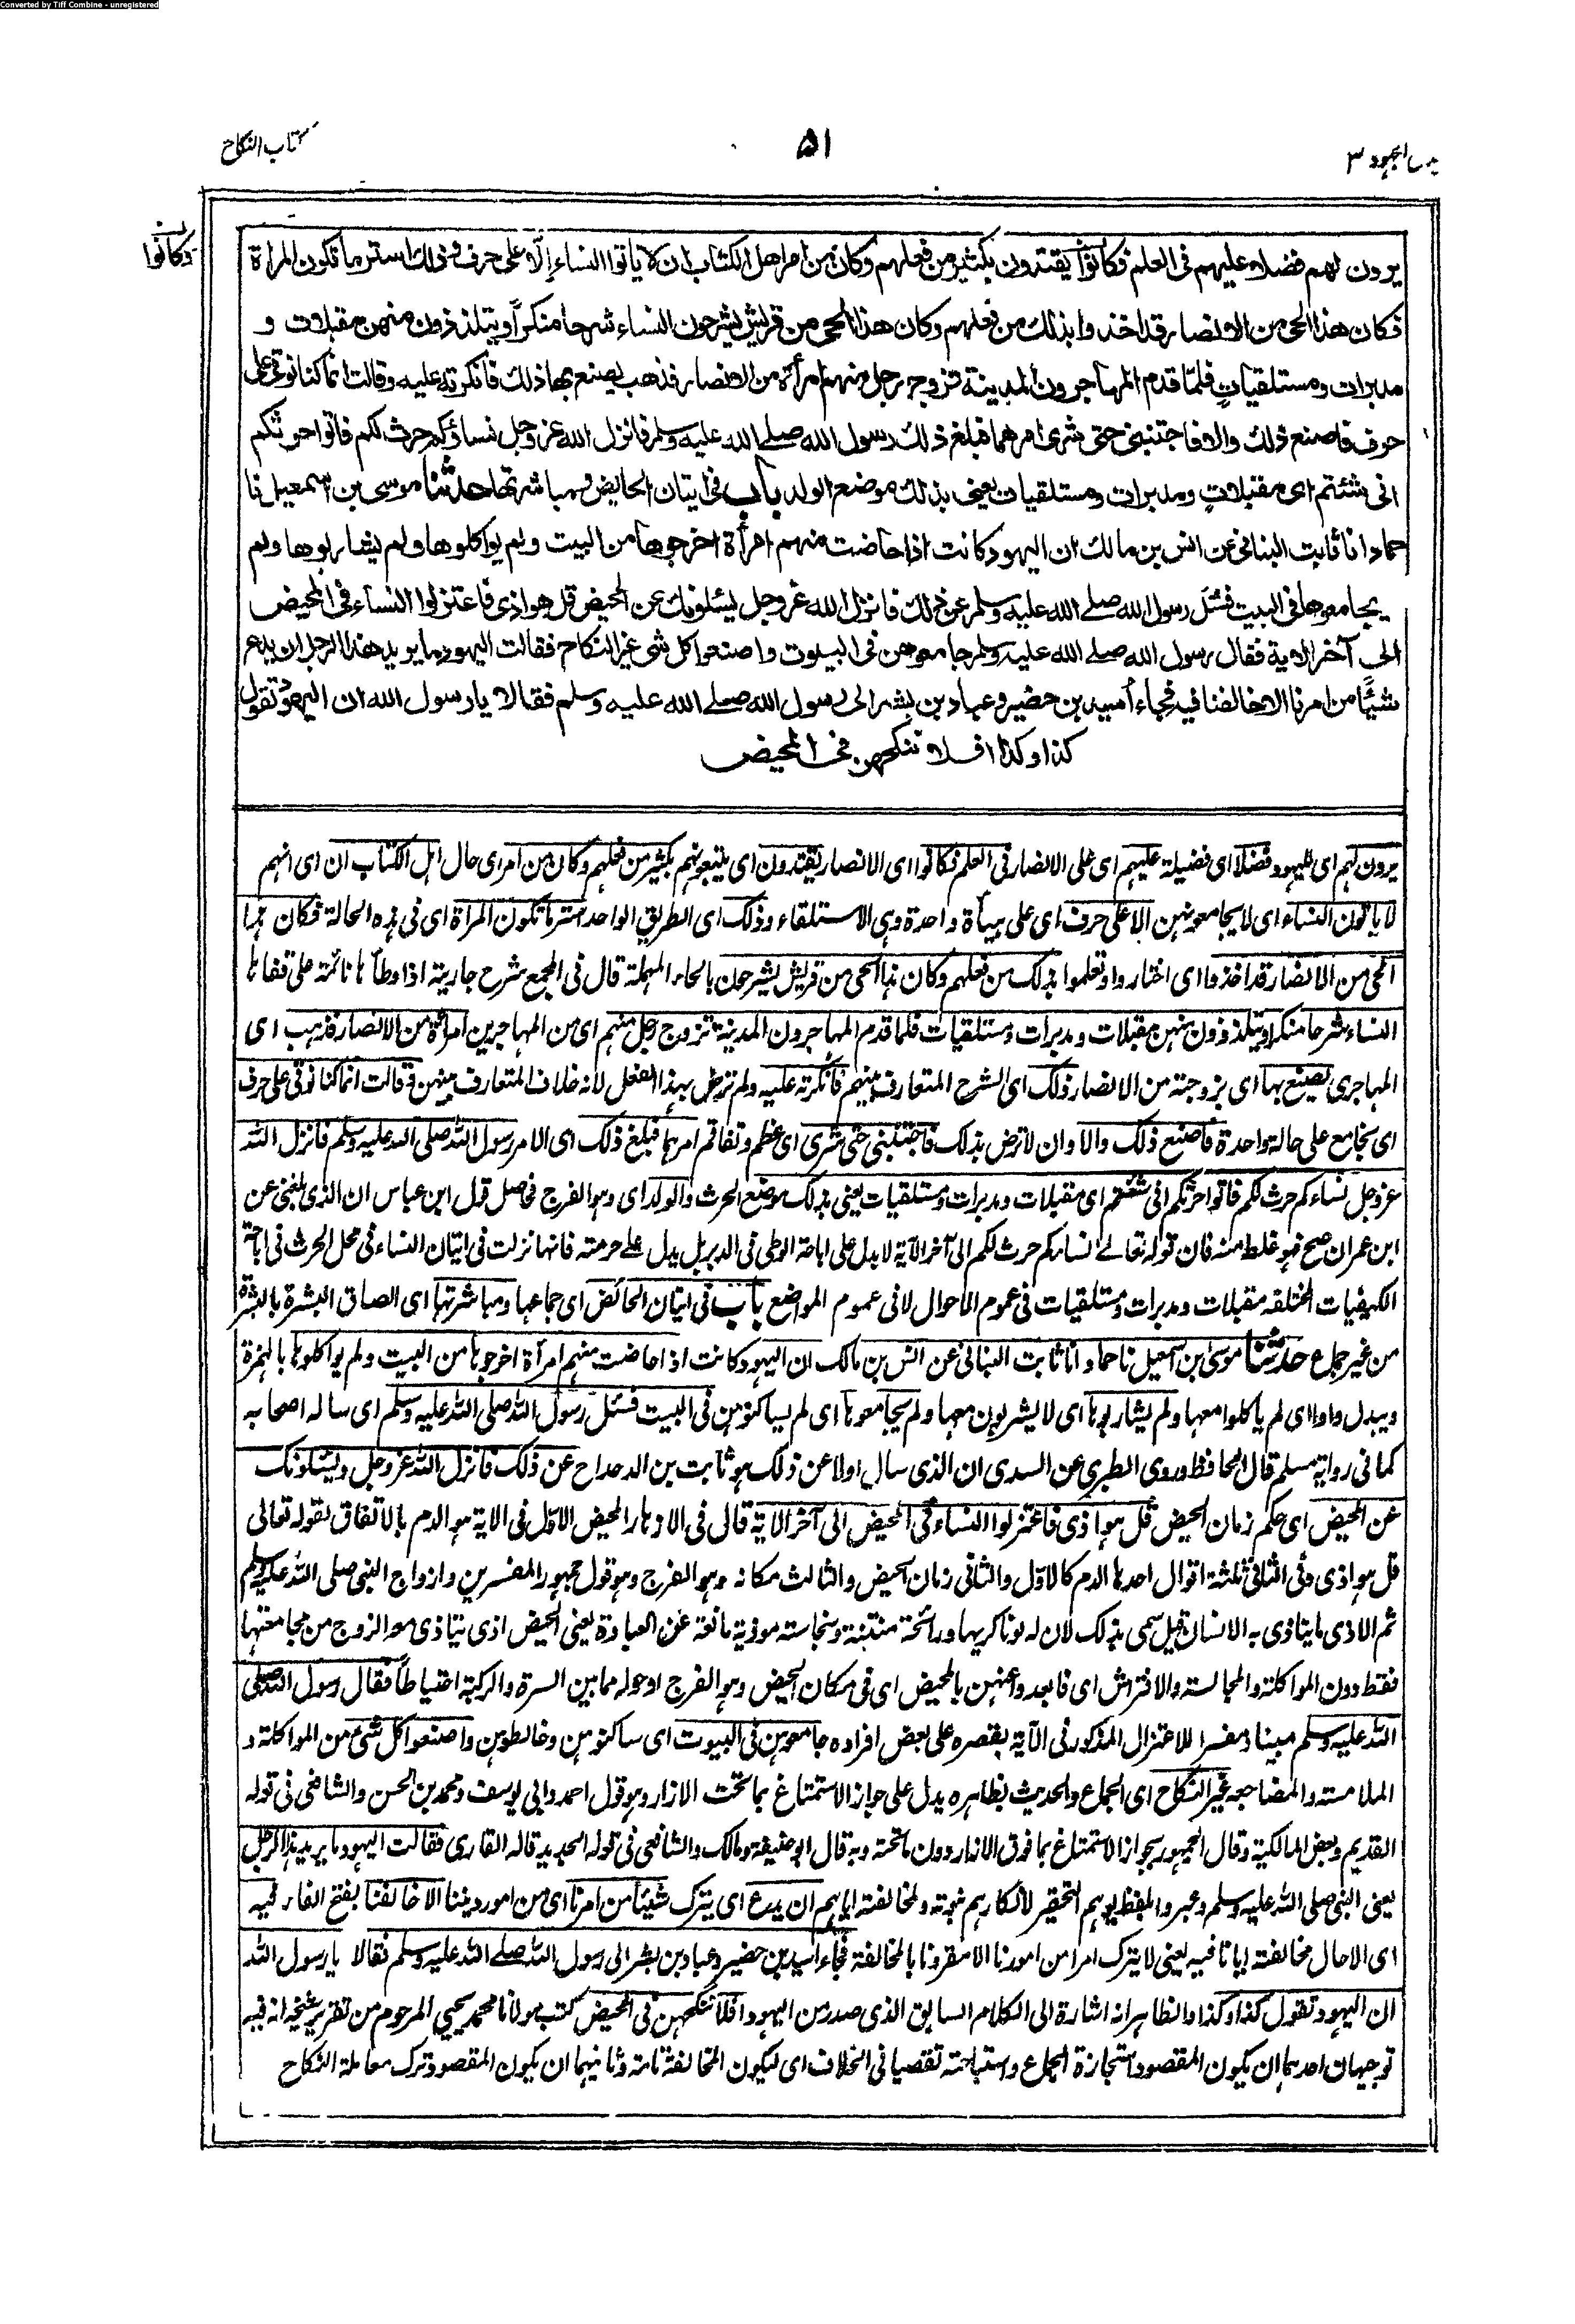 Converted by Tiff Combine - unregistered
كتاب النكاح
۵۱
المجهود ۳
وكانوا
يرون لهم فضلا عليهم فى العلم فكانوا يقتدون بكثير من فعلهم وكان من امر اهل الكتاب ان لا ياتوا النساء إلّا على حرف وذلك استر ما تكون المرأة
فكان هذا الحى من الانصار قد اخذوا بذلك من فعلهم وكان هذا الحى من قريش يشرحون النساء شرحا منكراً ويتلذذون منهن مقبلات و
مدبرات ومستلقيات فلمّا قدم المهاجرون المدينة تزوج رجل منهم امرأة من الانصار فذهب يصنع بها ذلك فانكرته عليه وقالت انما كنا نوتى على
حرف فاصنع ذلك والا فاجتنبنى حتى شرى امرهما فبلغ ذلك رسول الله صلے الله عليه وسلم فانزل الله عز وجل نساؤكم حرث لكم فاتوا حرثكم
انى شئتم اى مقبلات ومدبرات ومستلقيات يعنى بذلك موضع الولد باب فى اتيان الحايض ومباشرتها حدثنا موسى بن اسمعيل نا
حماد انا ثابت البنانى عن انس بن مالك ان اليهود كانت اذا حاضت منهم امرأة اخرجوها من البيت ولم يواكلوها ولم يشاربوها ولم
يجامعوها فى البيت فسئل رسول الله صلے الله عليه وسلم عن ذلك فانزل الله عز وجل يسئلونك عن المحيض قل هو اذى فاعتزلوا النساء فى المحيض
الى آخر الاية فقال رسول الله صلے الله عليه وسلم جامعوهن فى البيوت واصنعوا كل شئ غير النكاح فقالت اليهود ما يريد هذا الرجل ان يدع
شيئًا من امرنا الا خالفنا فيه فجاء أسيد بن حضير وعباد بن بشر الى رسول الله صلے الله عليه وسلم فقالا يا رسول الله ان اليهود تقول
كذا وكذا افلا ننكحهن فى المحيض
يرون لهم اى لليهود فضلا اى فضيلة عليهم اى على الانصار فى العلم فكانوا اى الانصار يقتدون اى يتبعونهم بكثير من فعلهم وكان من امر اى حال اهل الكتاب ان اى انهم
لا ياتون النساء اى لا يجامعونهن الا على حرف اى على هيأة واحدة وهى الاستلقاء وذلك اى الطريق الواحد استر ما تكون المرأة اى فى هذه الحالة فكان هذا
الحى من الانصار قد اخذوا اى اختاروا وتعلموا بذلك من فعلهم وكان هذا الحى من قريش يشرحون بالحاء المهملة قال فى المجمع شرح جارية اذا وطأها نائمة على قفاها
النساء شرحا منكرا ويتلذذون منهن مقبلات ومدبرات ومستلقيات فلما قدم المهاجرون المدينة تزوج رجل منهم اى من المهاجرين امرأة من الانصار فذهب اى
المهاجرى يصنع بها اى بزوجته من الانصار ذلك اى الشرح المتعارف بينهم فانكرته عليه ولم ترض بهذا الفعل لانه خلاف المتعارف بينهن وقالت انما كنا نوتى على حرف
اى نجامع على حالة واحدة فاصنع ذلك والا وان لا ترض بذلك فاجتنبنى حتى شرى اى عظم وتفاقم امرهما فبلغ ذلك اى الامر رسول الله صلى الله عليه وسلم فانزل الله
عز وجل نساءكم حرث لكم فاتوا حرثكم انى شئتم اى مقبلات ومدبرات ومستلقيات يعنى بذلك موضع الحرث والولد اى وهو الفرج فحاصل قول ابن عباس ان الذى بلغنى عن
ابن عمر ان صح فهو غلط منه فان قوله تعالے نساءكم حرث لكم الى آخر الآية لا يدل على اباحة الوطى فى الدبر بل يدل علے حرمته فانها نزلت فى اتيان النساء فى محل الحرث فى اباحة
الكيفيات المختلفة مقبلات ومدبرات ومستلقيات فى عموم الاحوال لا فى عموم المواضع باب فى اتيان الحائض اى جماعها ومباشرتها اى الصاق البشرة بالبشرة
من غير جماع حدثنا موسى ابن اسمعيل نا حماد انا ثابت البنانى عن انس بن مالك ان اليهود كانت اذا حاضت منهم امرأة اخرجوها من البيت ولم يواكلوها بالهمزة
ويبدل واوا اى لم ياكلوا معها ولم يشاربوها اى لا يشربون معها ولم يجامعوها اى لم يساكنوهن فى البيت فسئل رسول الله صلى الله عليه وسلم اى ساله اصحابه
كما فى رواية مسلم قال الحافظ وروى الطبرى عن السدى ان الذى سال اولا عن ذلك هو ثابت بن الدحداح عن ذلك فانزل الله عز وجل ويسئلونك
عن المحيض اى حكم زمان الحيض قل هو اذى فاعتزلوا النساء فى المحيض الى آخر الآية قال فى الازهار المحيض الاول فى الاية هو الدم بالاتفاق لقوله تعالى
قل هو اذى وفى الثانى ثلثة اقوال احدها الدم كالاول والثانى زمان الحيض والثالث مكانه وهو الفرج وهو قول جمهور المفسرين وازواج النبى صلى الله عليه وسلم
ثم الاذى ما يتاذى به الانسان قيل سمى بذلك لان له لونا كريها ورائحة منتنة ونجاسته موذية مانعة عن العبادة يعنى الحيض اذى يتاذى معه الزوج من مجامعتها
فقط دون المواكلة والمجالسة والافتراش اى فابعدوا عنهن بالمحيض اى فى مكان الحيض وهو الفرج او حوله مما بين السرة والركبة احتياطاً فقال رسول الله صلى
الله عليه وسلم مبينا ومفسرا للاعتزال المذكور فى الآية بقصره على بعض افراده جامعوهن فى البيوت اى ساكنوهن وخالطوهن واصنعوا كل شئ من المواكلة و
الملامسة والمضاجعة غير النكاح اى الجماع والحديث بظاهره يدل على جواز الاستمتاع بما تحت الازار وهو قول احمد وابى يوسف ومحمد بن الحسن والشافعى فى قوله
القديم وبعض المالكية وقال الجمهور بجواز الاستمتاع بما فوق الازار دون ما تحته وبه قال ابو حنيفة ومالك والشافعى فى قوله الجديد قاله القارى فقالت اليهود ما يريد هذا الرجل
يعنى النبى صلى الله عليه وسلم وعبروا بلفظ يوهم التحقير لانكارهم نبوته ولمخالفته اياهم ان يدع اى يترك شيئا من امرنا اى من امور ديننا الا خالفنا بفتح الفاء فيه
اى الا حال مخالفته ايانا فيه يعنى لا يترك امرا من امورنا الا مقرونا بالمخالفة فجاء اسيد بن حضير وعباد بن بشر الى رسول الله صلے الله عليه وسلم فقالا يا رسول الله
ان اليهود تقول كذا وكذا والظاهر انه اشارة الى الكلام السابق الذى صدر من اليهود افلا ننكحهن فى المحيض كتب مولانا محمد يحيى المرحوم من تقرير شيخه انه فيه
توجيهان احدهما ان يكون المقصود استجازة الجماع واستباحته تقصيا فى الخلاف اى ليكون المخالفة تامة وثانيهما ان يكون المقصود ترك معاملة النكاح